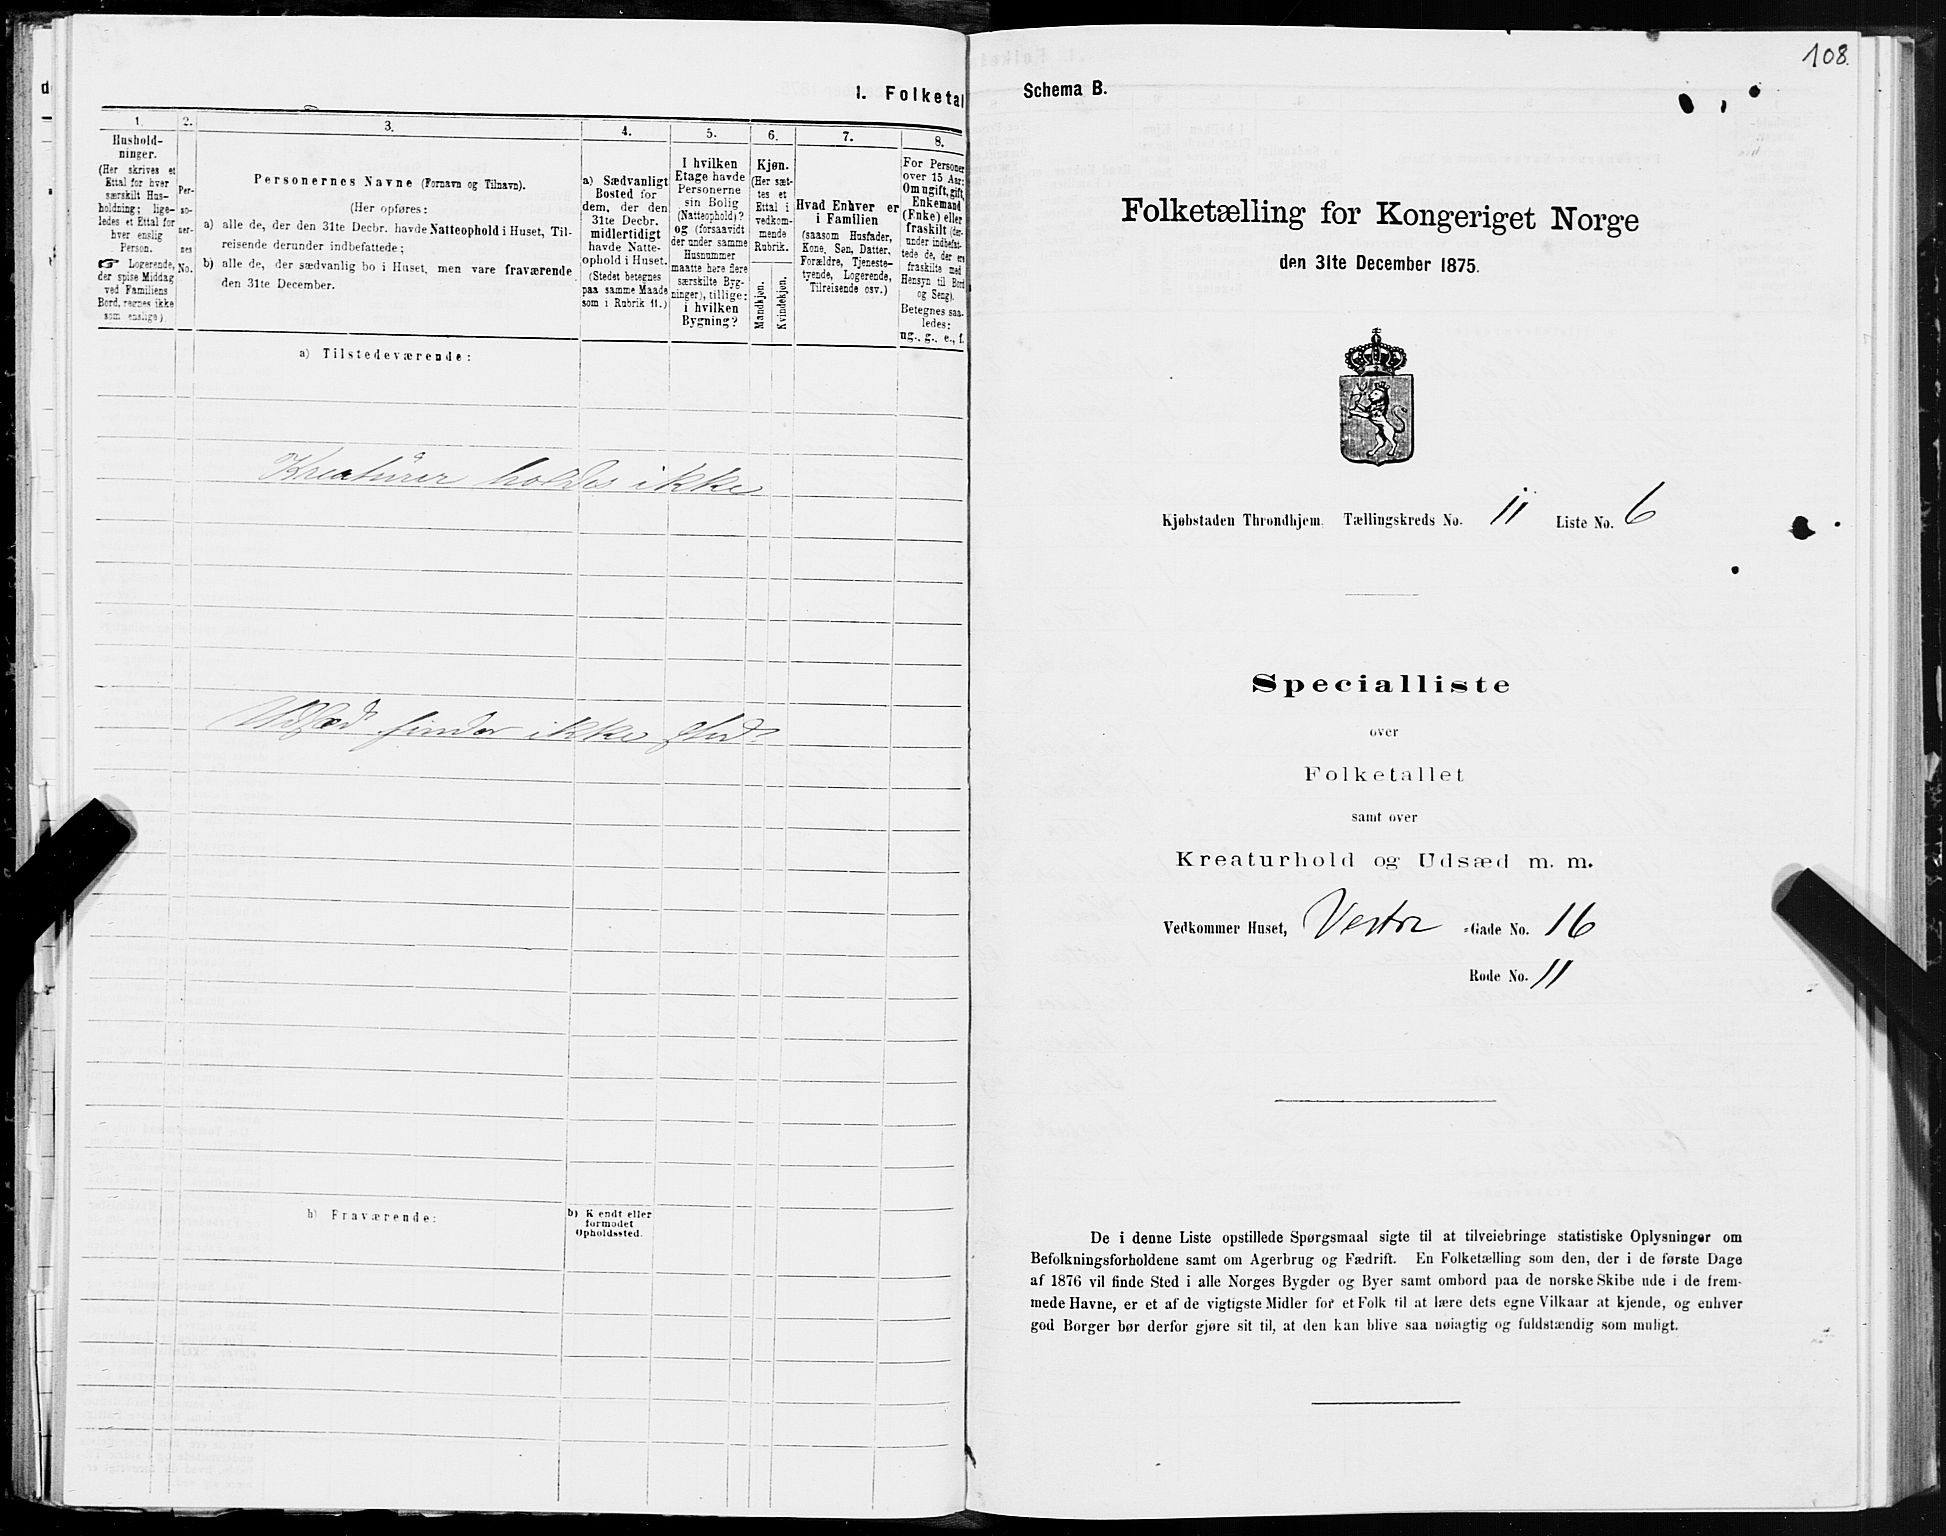 1. Folketal
1.
2.
3.
4.
5.
6.
7.
8.
Hushold-
ninger.
(Her skrives et
Ettal for hver
særskilt Hus-
holdning; lige-
ledes et Ettal for
hver enslig
Person.
☞ Logerende,
der spise Middag
ved Familiens
Bord, regnes ikke
som enslige)
Per-
so-
ner-
nes
No.
Personernes Navne (Fornavn og Tilnavn).
(Her opføres:
a) alle de, der den 31te Decbr. havde Natteophold i Huset, Til-
reisende derunder indbefattede;
b) alle de, der sædvanlig bo i Huset, men vare fraværende
den 31te December.
a) Sædvanligt
Bosted for
dem, der den
31te Decbr.
midlertidigt
havde Natte-
ophold i Huset.
(Stedet betegnes
paa samme Maade
som i Rubrik 11.)
I hvilken
Etage havde
Personerne
sin Bolig
(Natteophold)?
og (forsaavidt
der under samme
Husnummer
maatte høre flere
særskilte Byg-
ninger), tillige:
i hvilken
Bygning?
Kjøn.
(Her sæt-
tes et
Ettal i
vedkom-
mende
Rubrik.
Mandkjøn.
Kvindekjøn.
Hvad Enhver er
i Familien
(saasom Husfader,
Kone, Søn, Datter,
Forældre, Tjeneste-
tyende, Logerende,
Tilreisende osv.)
For Personer
over 15 Aar:
Om ugift, gift,
Enkemand
(Enke) eller
fraskilt (der-
under indbefat-
tede de, der ere
fraskilte med
Hensyn til Bord
og Seng).
Betegnes saa-
ledes:
ug., g., e., f.
a) Tilstedeværende:
Kreaturer holdes ikke
Udsæd finder ikke Sted
b) Fraværende:
b) Kjendt eller
formodet
Opholdssted.
108.
Schema B.
Folketælling for Kongeriget Norge
den 31te December 1875.
Kjøbstaden Throndhjem. Tællingskreds No. 11 Liste No. 6
Specialliste
over
Folketallet
samt over
Kreaturhold og Udsæd m. m.
Vedkommer Huset, Vestre -Gade No. 16
Rode No. 11
De i denne Liste opstillede Spørgsmaal sigte til at tilveiebringe statistiske Oplysninger om
Befolkningsforholdene samt om Agerbrug og Fædrift. En Folketælling som den, der i de første Dage
af 1876 vil finde Sted i alle Norges Bygder og Byer samt ombord paa de norske Skibe ude i de frem-
mede Havne, er et af de vigtigste Midler for et Folk til at lære dets egne Vilkaar at kjende, og enhver
god Borger bør derfor gjøre sit til, at den kan blive saa nøiagtig og fuldstændig som muligt.